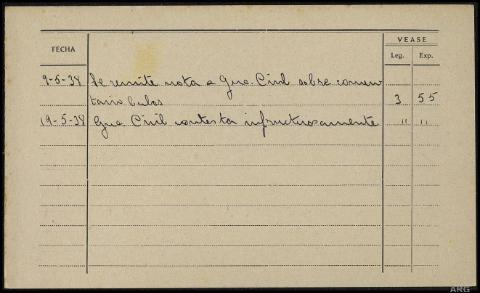 VEASE
FECHA Leg. Exp.
9-5-38 Se remite nota a Gua. Civil sobre comen-
tario bulos 3 55
19-5-38 Gua. Civil contesta infructuosamente " "
ARG